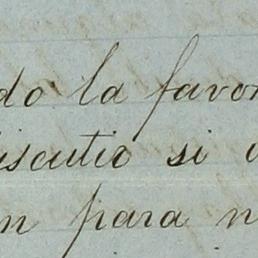 do la favor
iscutio si
n para n